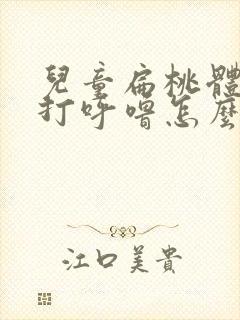 兒童扁桃體
打呼嚕怎麼
江口美貴